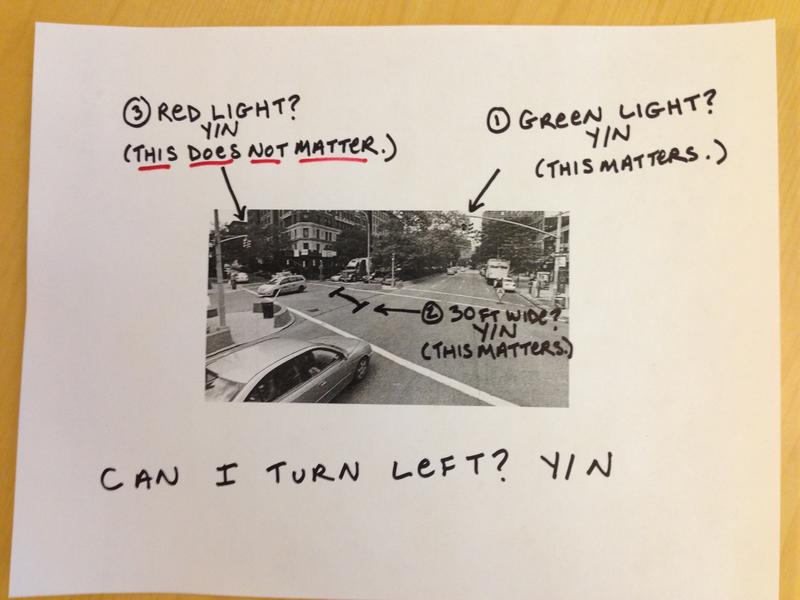 ③ RED LIGHT?
Y/N
(THIS DOES NOT MATTER.)
① GREEN LIGHT?
Y/N
(THIS MATTERS.)
② 30FT WIDE?
Y/N
(THIS MATTERS.)
CAN I TURN LEFT? Y/N